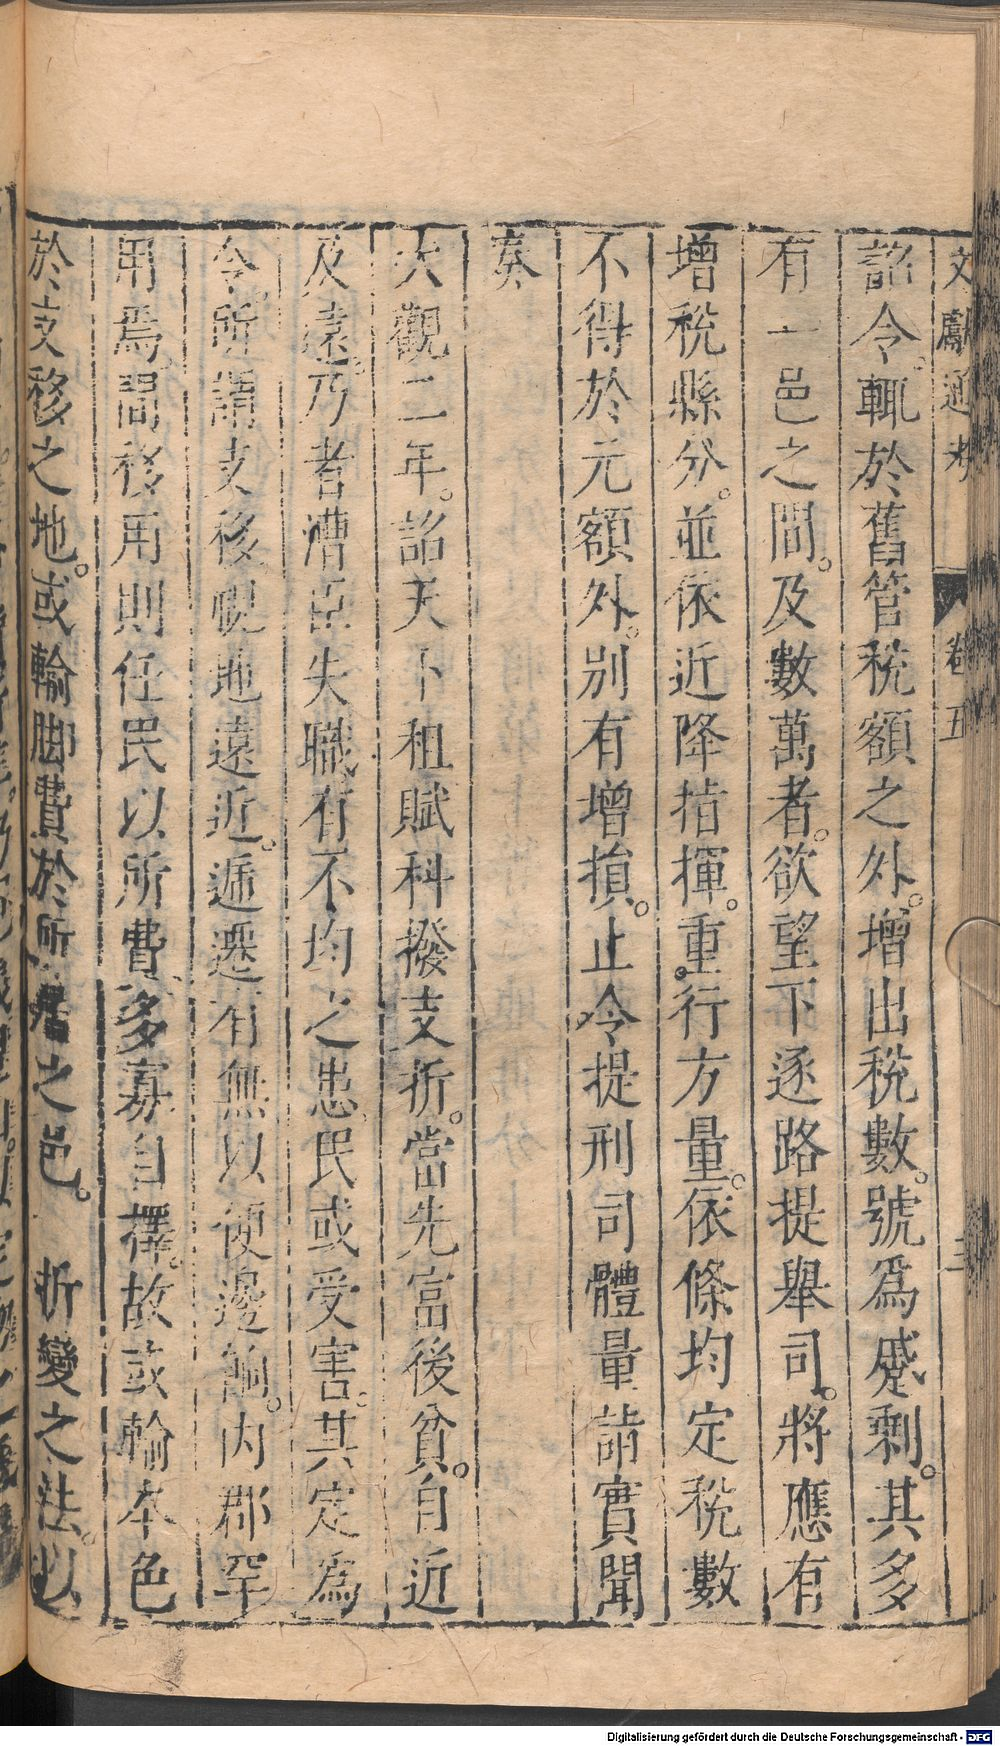 文獻通考 卷五 三
詔令。輒於舊管稅額之外。增出稅數。號爲蹙剩。其多
有一邑之間。及數萬者。欲望下逐路提舉司。將應有
增稅縣分。並依近降指揮。重行方量。依條均定稅數
不得於元額外。別有增損。止令提刑司體量詣實聞
奏
大觀二年。詔天下租賦科撥支折。當先富後貧。自近
及遠。乃者漕臣失職。有不均之患。民或受害。其定爲
令。所謂支移。視地遠近。遞遷有無。以便邊餉。內郡罕
用焉。間移用則任民以所費多寡自擇。故或輸本色
於支移之地。或輸脚費於所居之邑。 折變之法。以
Digitalisierung gefördert durch die Deutsche Forschungsgemeinschaft - DFG